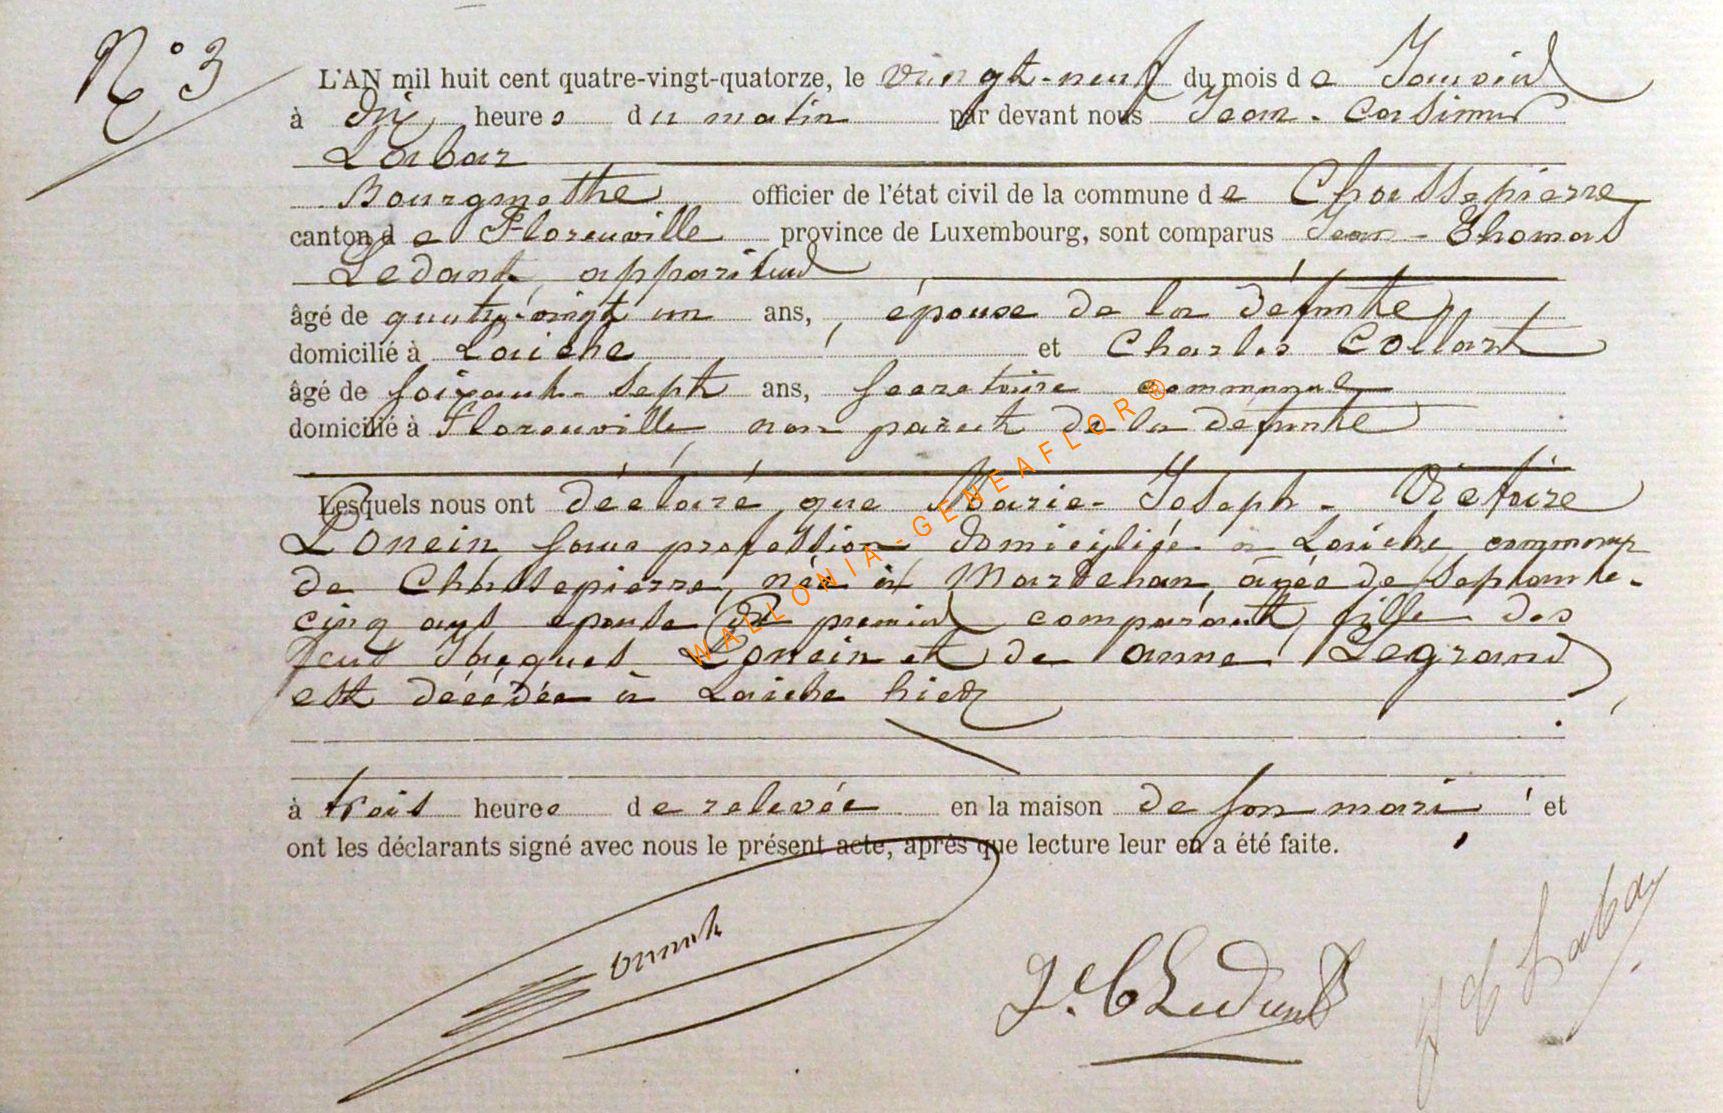 N° 3
L'AN mil huit cent quatre-vingt-quatorze, le vingt-neuf du mois de Janvier
à dix heures du matin par devant nous Jean-Casimir
Labar
Bourgmestre officier de l'état civil de la commune de Chassepierre
canton de Florenville province de Luxembourg, sont comparus Jean-Thomas
Ledant, appariteur
âgé de quatre-vingt un ans, épouse de la défunte
domicilié à Laiche et Charles Collart
âgé de soixante-sept ans, secretaire communal
domicilié à Florenville non parent de la défunte
Lesquels nous ont déclaré que Marie-Joseph-Victoire
Lonein sans profession domicilié à Laiche commune
de Chassepierre, née à Martehan, âgée de septante-
cinq ans épouse du premier comparant, fille des
feus Jacques Lonein et de Anne Legrand
est décédée à Laiche hier
à trois heures de relevée en la maison de son mari et
ont les déclarants signé avec nous le présent acte, après que lecture leur en a été faite.
Ledant
J C Labar
WALLONIA-GENEAFLOR®